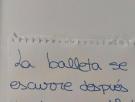 La balleta se
escurre después